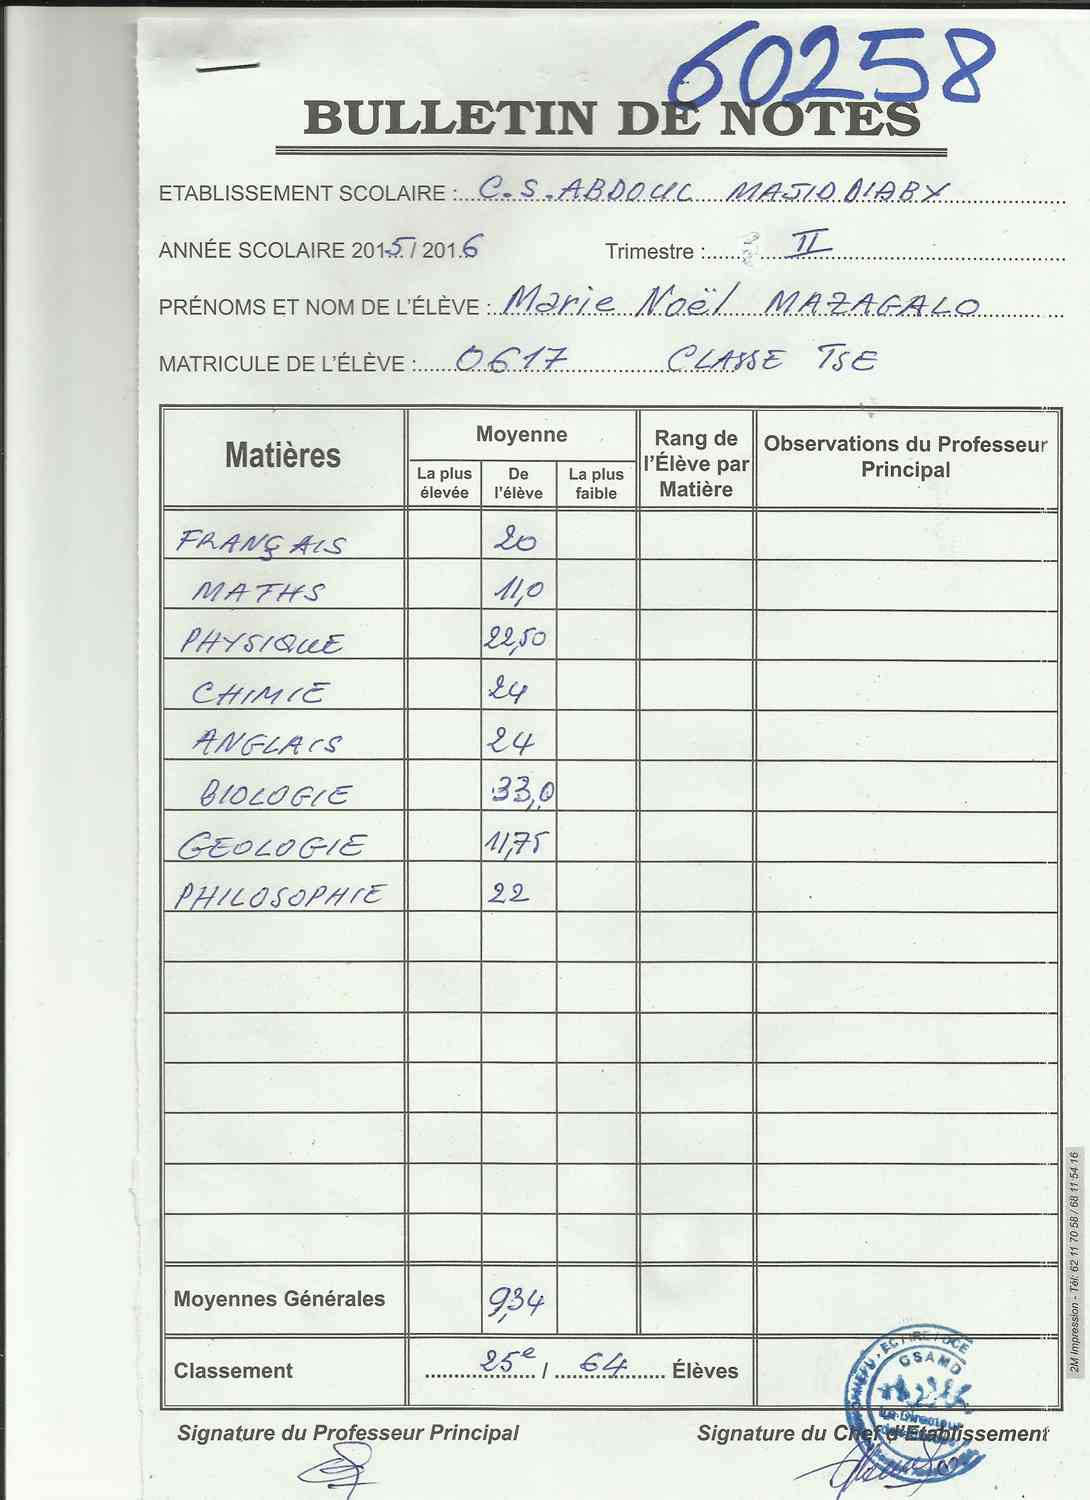 60258
BULLETIN DE NOTES
ETABLISSEMENT SCOLAIRE : C.S. ABDOUL MAJID DIABY
ANNÉE SCOLAIRE 2015 / 2016 Trimestre : II
PRÉNOMS ET NOM DE L'ÉLÈVE : Marie Noël MAZAGALO
MATRICULE DE L'ÉLÈVE : 0617 CLASSE TSE
Matières Moyenne Rang de l'Élève par Matière Observations du Professeur Principal
La plus élevée De l'élève La plus faible
FRANÇAIS 20
MATHS 11,0
PHYSIQUE 22,50
CHIMIE 24
ANGLAIS 24
BIOLOGIE 33,0
GEOLOGIE 11,75
PHILOSOPHIE 22
Moyennes Générales 9,34
Classement 25e / 64 Élèves
Signature du Professeur Principal Signature du Chef d'Etablissement
GSAMD
Le Directeur
2M Impression - Tél: 62 11 70 58 / 68 11 54 16